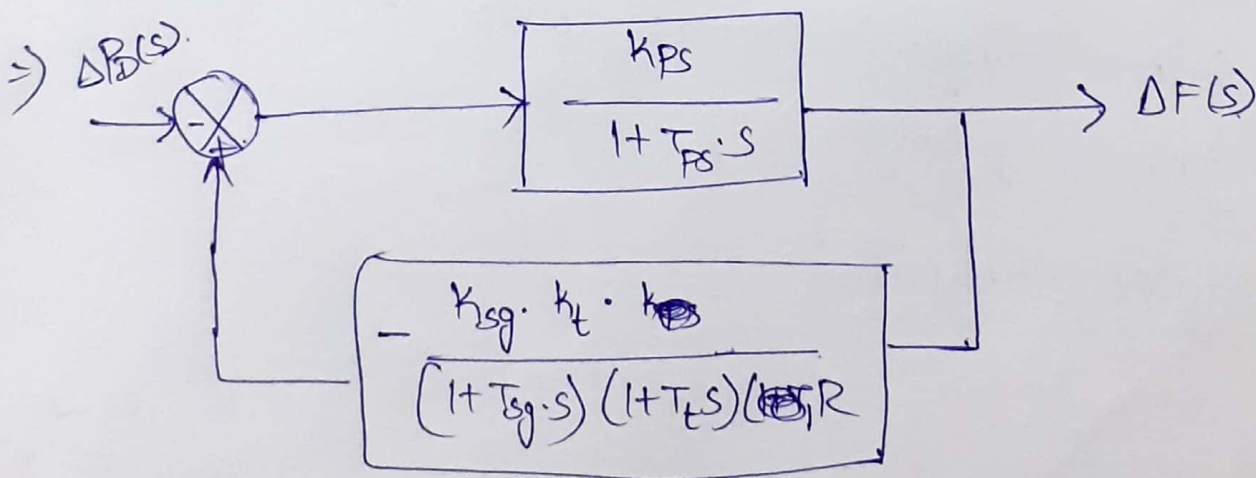 =) ΔP_D(s).
-
+
K_PS
1 + T_PS · S
ΔF(s)
- K_sg · K_t ·
(1 + T_sg · s) (1 + T_t s) R